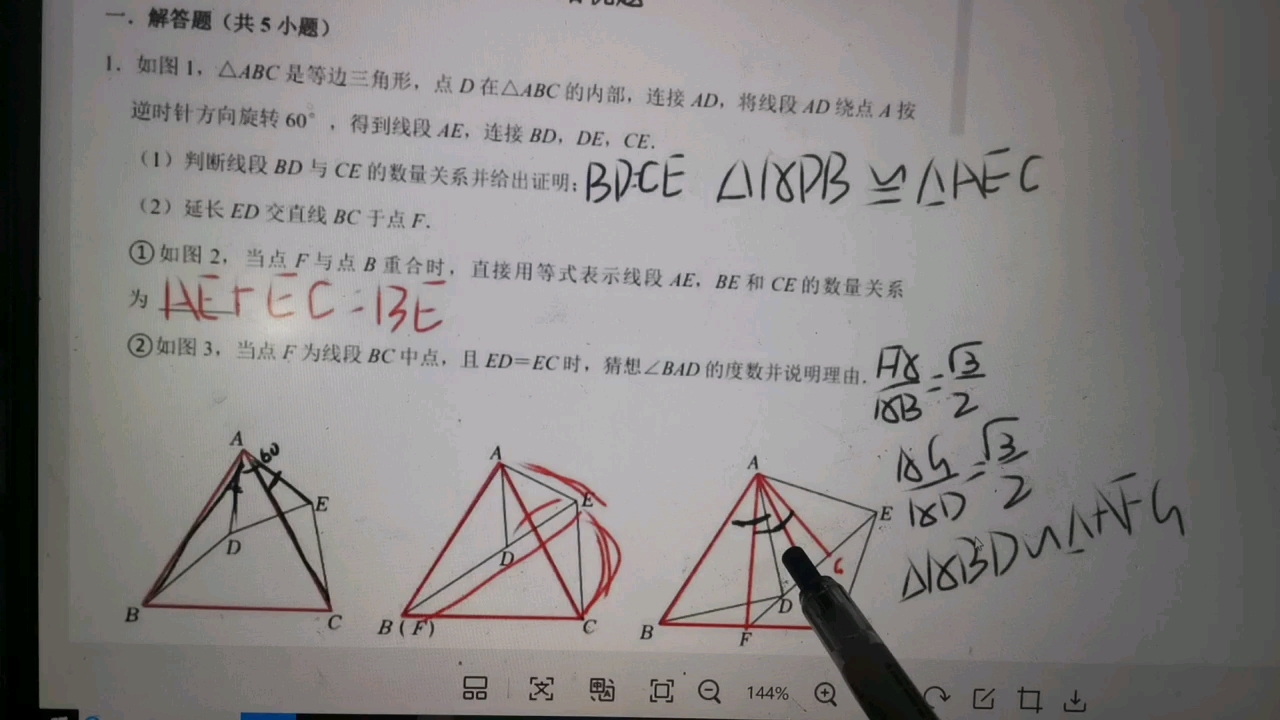 一．解答题（共 5 小题）
1．如图 1，△ABC 是等边三角形，点 D 在△ABC 的内部，连接 AD，将线段 AD 绕点 A 按
逆时针方向旋转 60°，得到线段 AE，连接 BD，DE，CE．
（1）判断线段 BD 与 CE 的数量关系并给出证明；
BD=CE △ADB ≌ △AEC
（2）延长 ED 交直线 BC 于点 F．
①如图 2，当点 F 与点 B 重合时，直接用等式表示线段 AE，BE 和 CE 的数量关系
为 AE+EC=BE
②如图 3，当点 F 为线段 BC 中点，且 ED＝EC 时，猜想∠BAD 的度数并说明理由．
AF/AB=√3/2
AG/AD=√3/2
△ABD∽△AFG
A 60 E D B C
A E D B(F) C
A E G D B F
144%